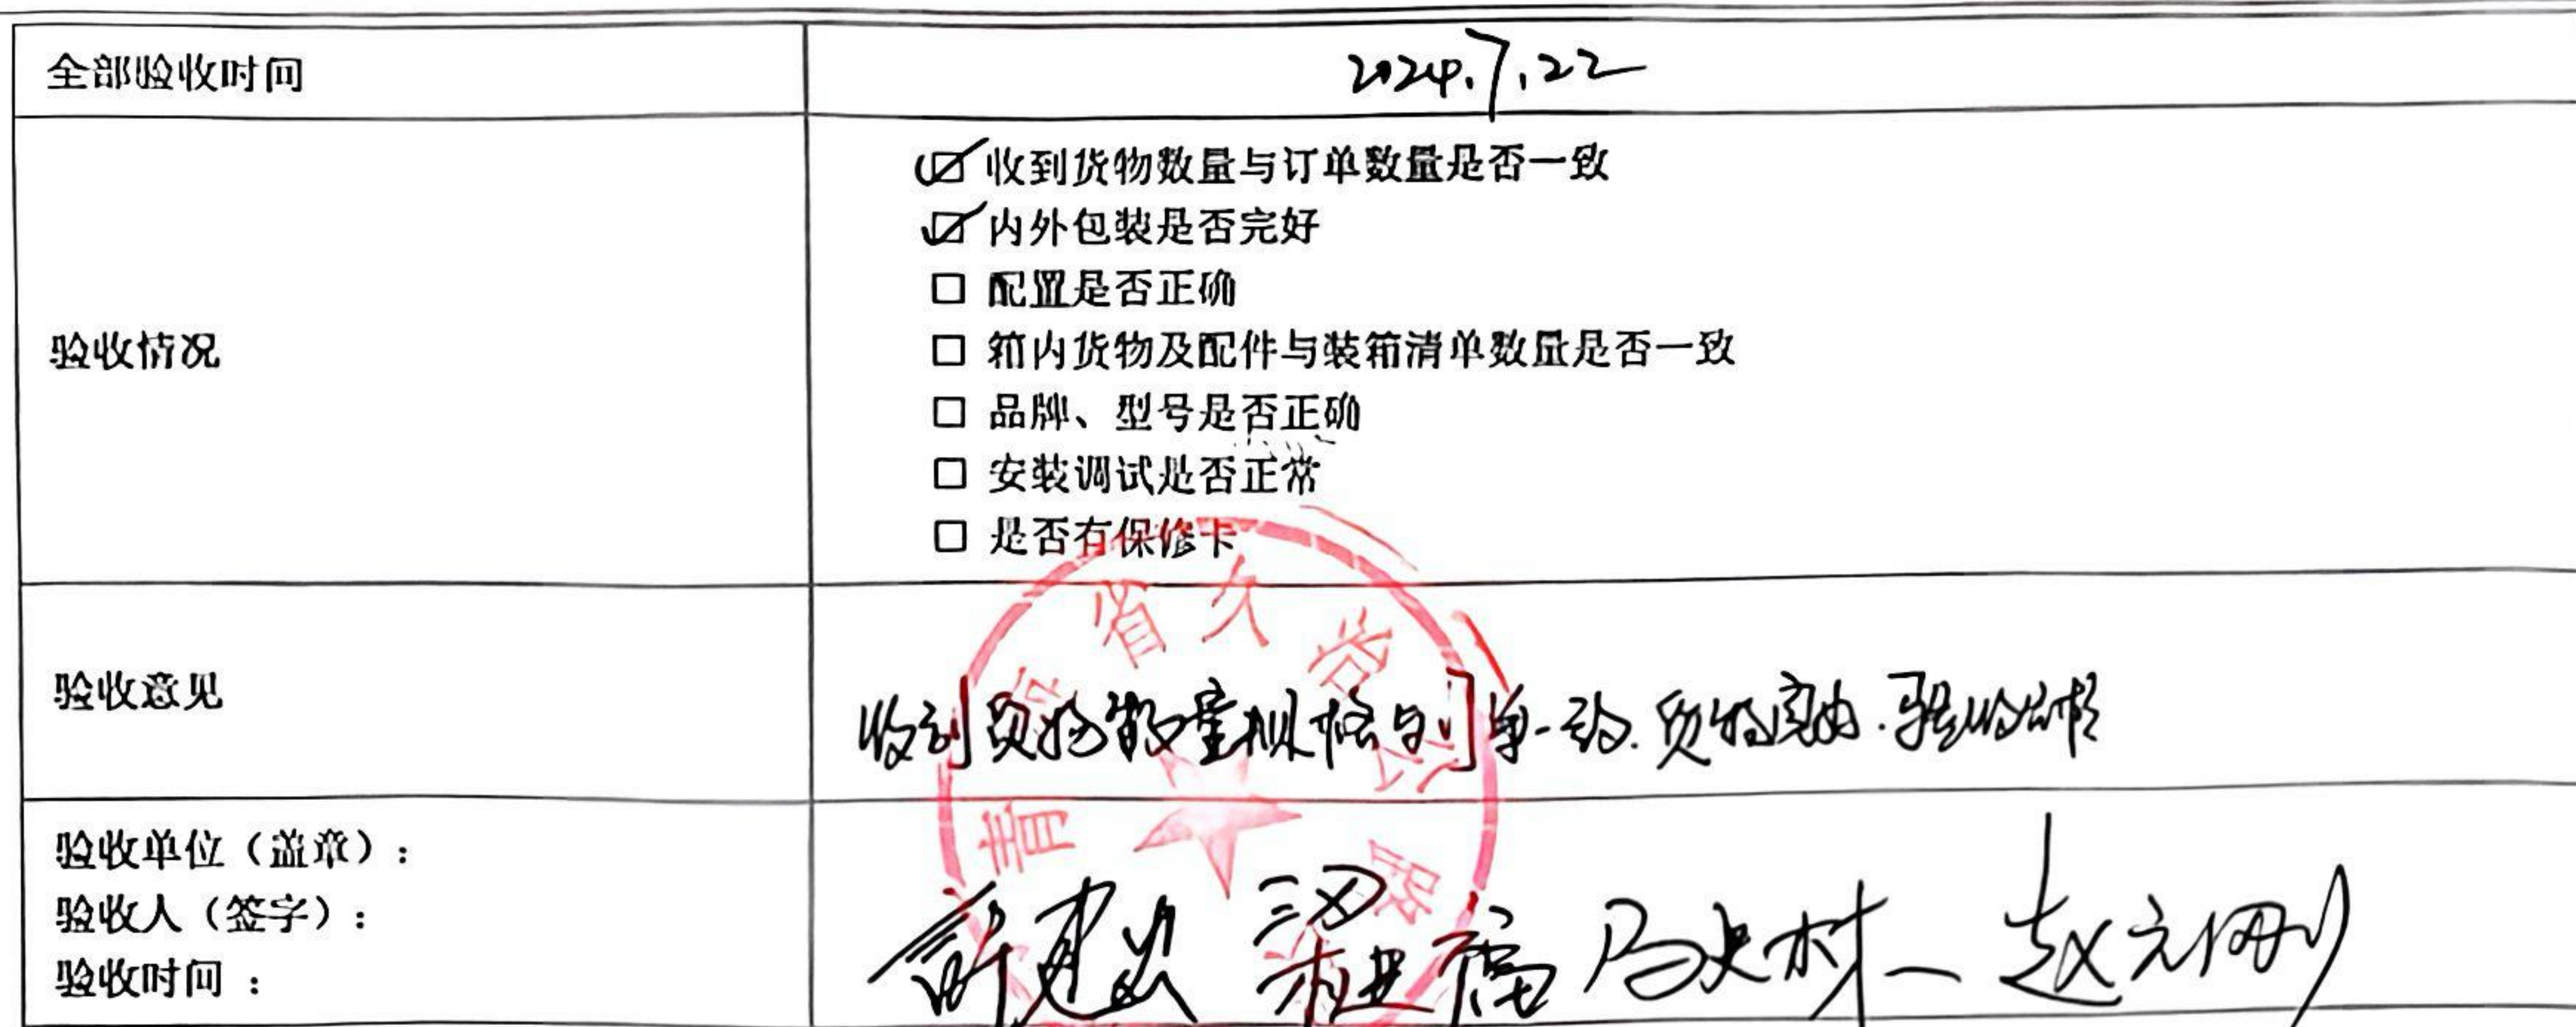 全部验收时间
2024.7.22
验收情况
收到货物数量与订单数量是否一致
内外包装是否完好
配置是否正确
箱内货物及配件与装箱清单数量是否一致
品牌、型号是否正确
安装调试是否正常
是否有保修卡
验收意见
收到货物数量规格与订单一致.质量完好.验收合格
验收单位（盖章）：
验收人（签字）：
验收时间 ：
赵元刚
青 省 久 治 公 路